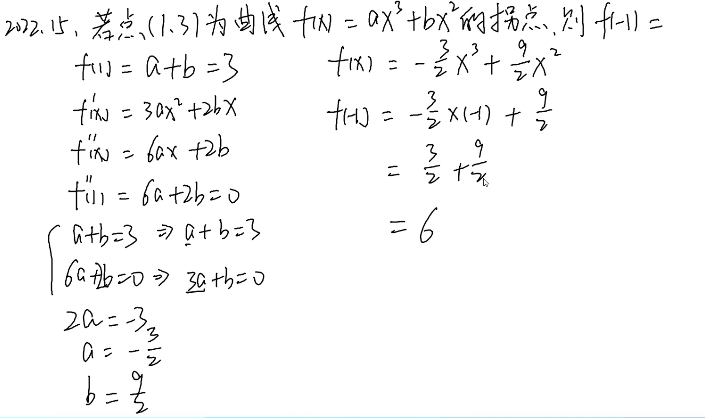 2022.15. 若点(1.3)为曲线 f(x) = ax³+bx²的拐点.则 f(-1) =
f(1) = a+b = 3
f'(x) = 3ax²+2bx
f''(x) = 6ax+2b
f''(1) = 6a+2b=0
{ a+b=3 ⇒ a+b=3
6a+2b=0 ⇒ 3a+b=0
2a=-3
a = -3/2
b = 9/2
f(x) = -3/2 x³ + 9/2 x²
f(-1) = -3/2 ×(-1) + 9/2
= 3/2 + 9/2
= 6